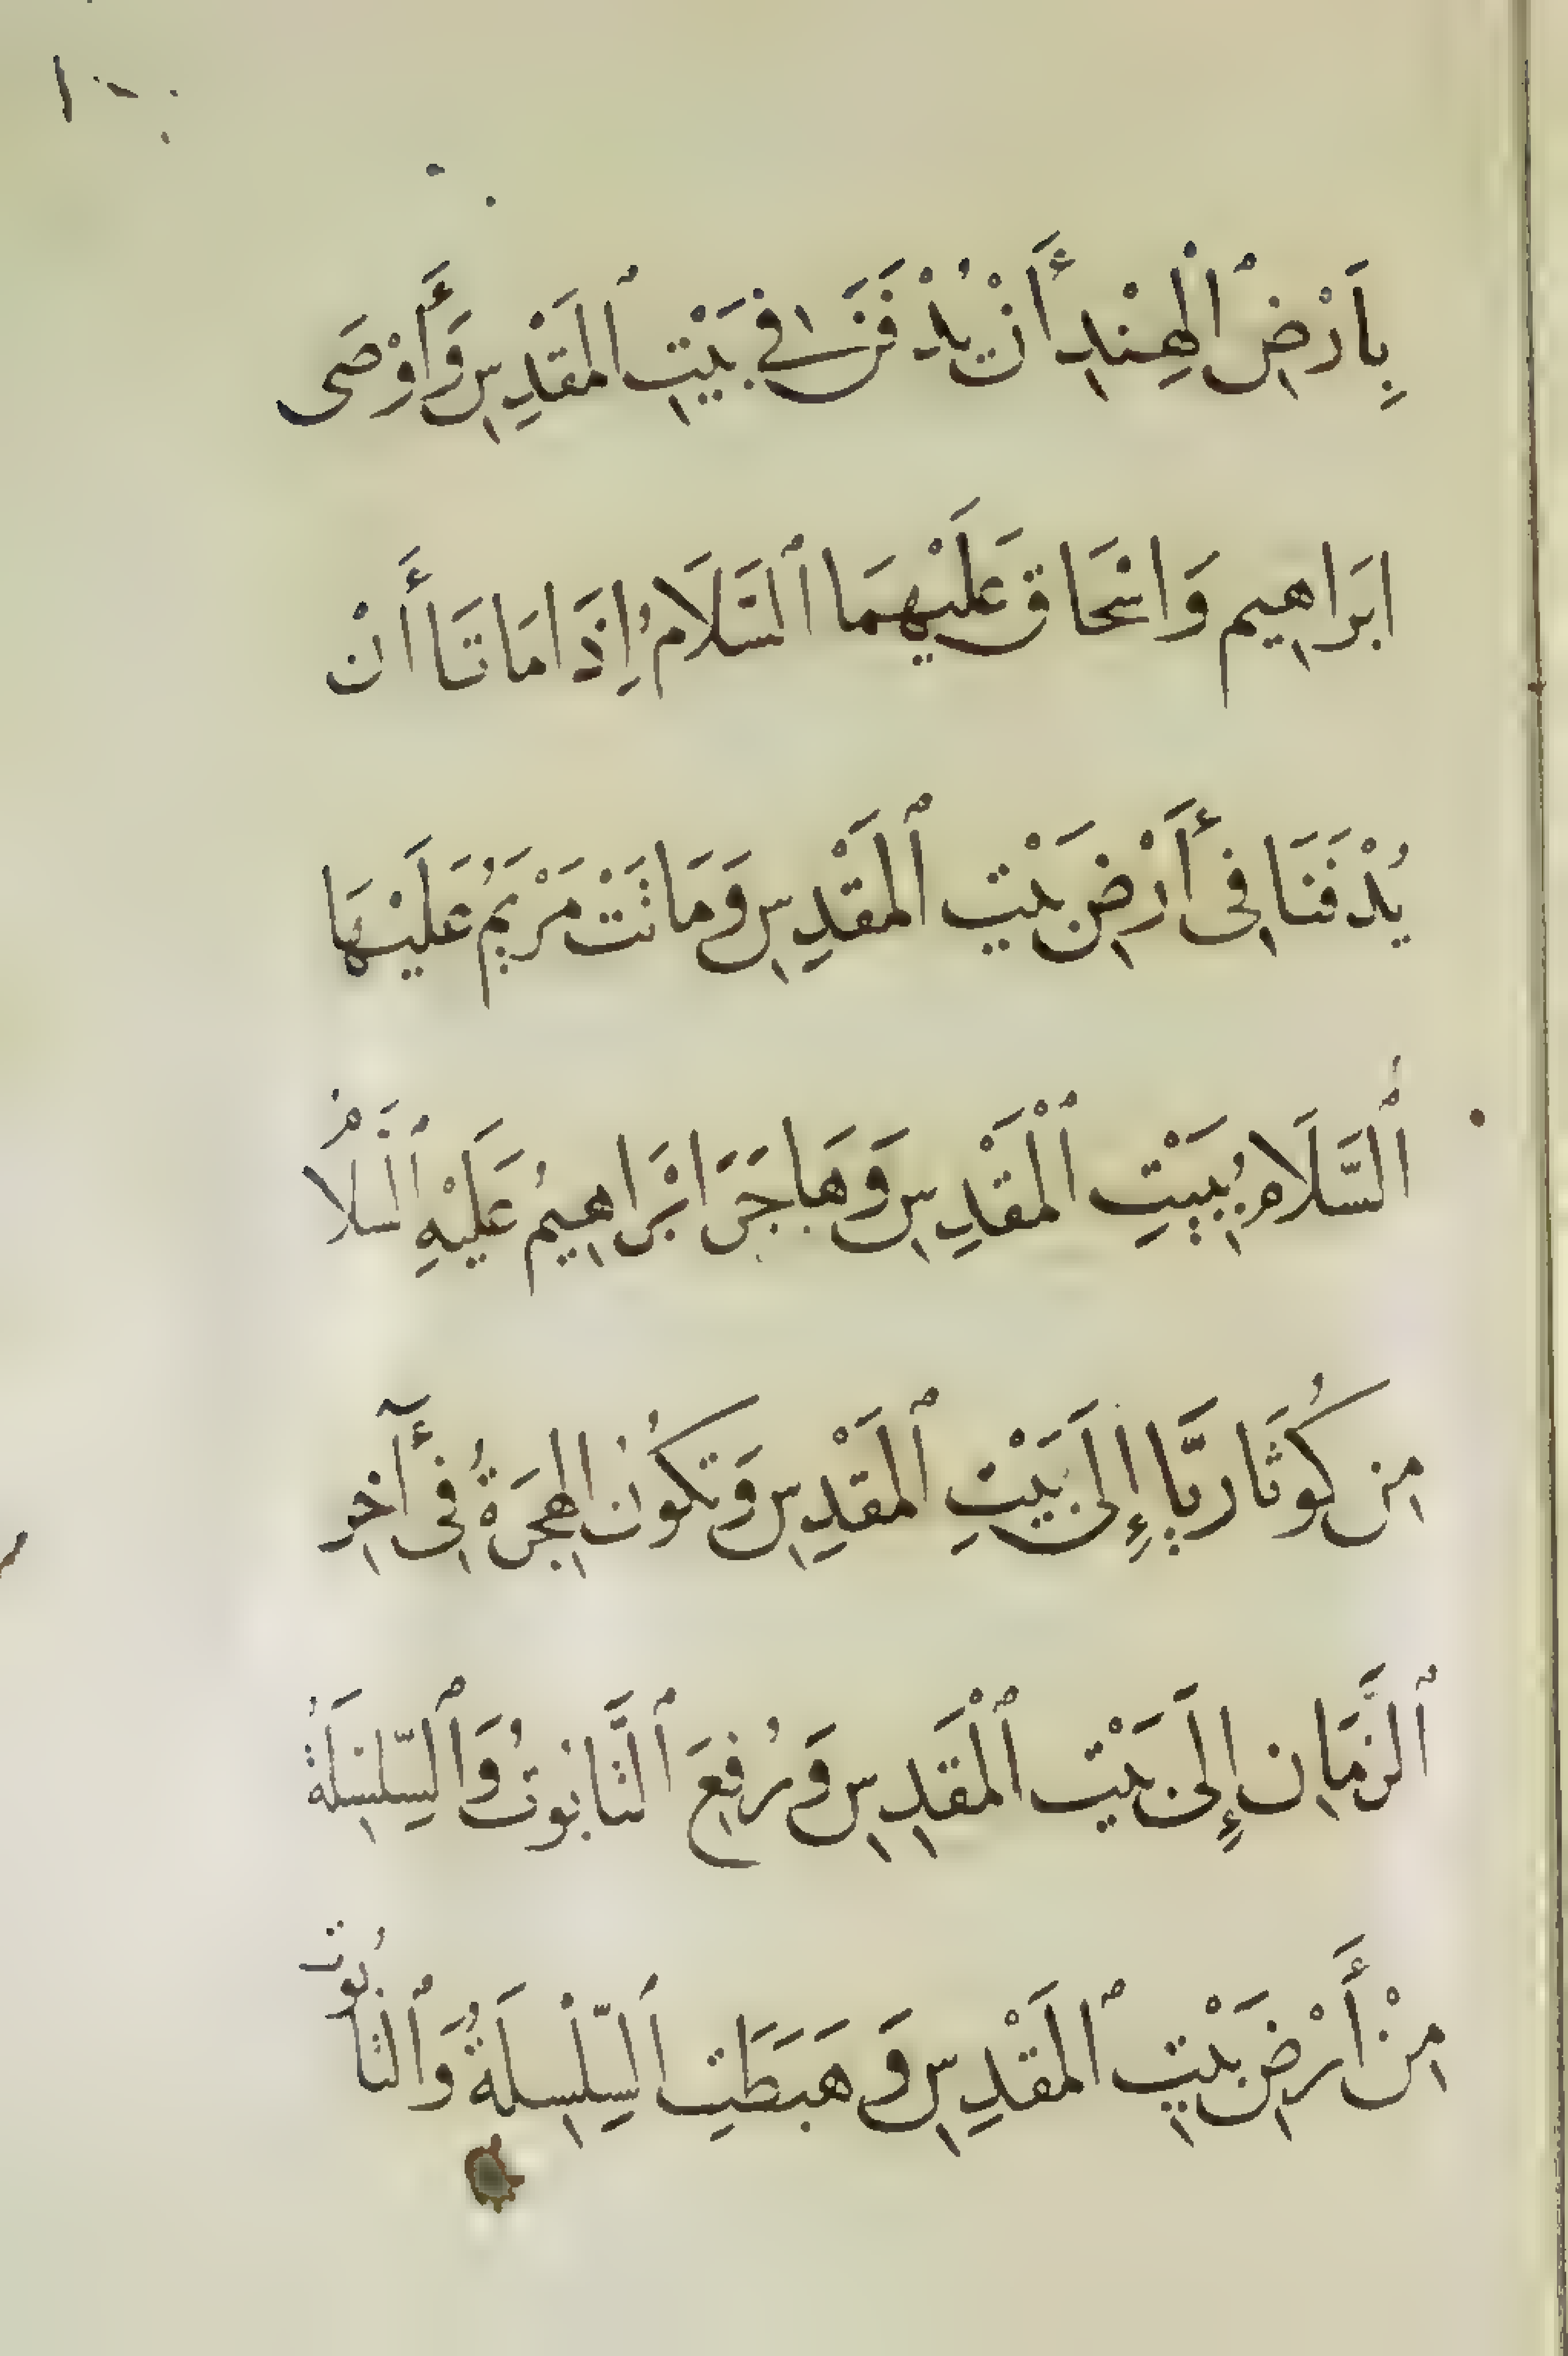 بِاَرْضِ ٱلْهِنْدِ أَنْ يُدْفَنَ فِي بَيْتِ ٱلمَقْدِسِ وَأَوْصَى
ابَراهِيم وَاسْحَاق عَلَيْهِمَا ٱلسَّلَامُ إِذَا مَاتَا أَنْ
يُدْفَنَا فِى أَرْضِ بَيْتِ ٱلمَقْدِسِ وَمَاتَتْ مَرْيَمُ عَلَيْهَا
ٱلسَّلَامُ بِبَيْتِ ٱلْمَقْدِسِ وَهَاجَرَ ابْرَاهِيمُ عَلَيْهِ ٱلسَّلَامُ
مِن كُوثَا رَبَّا إِلَى بَيْتِ ٱلمَقْدِسِ وَتَكُونُ الهِجرَةُ فِى آخِرِ
ٱلزَّمَانِ إِلَى بَيْتِ ٱلْمَقدِسِ وَرُفِعَ ٱلتَّابُوتُ وَٱلسِّلسِلَةُ
مِنْ أَرْضِ بَيْتِ ٱلمَقْدِسِ وَهَبَطَتِ السِّلْسِلَةُ وَٱلتَّابُوتُ